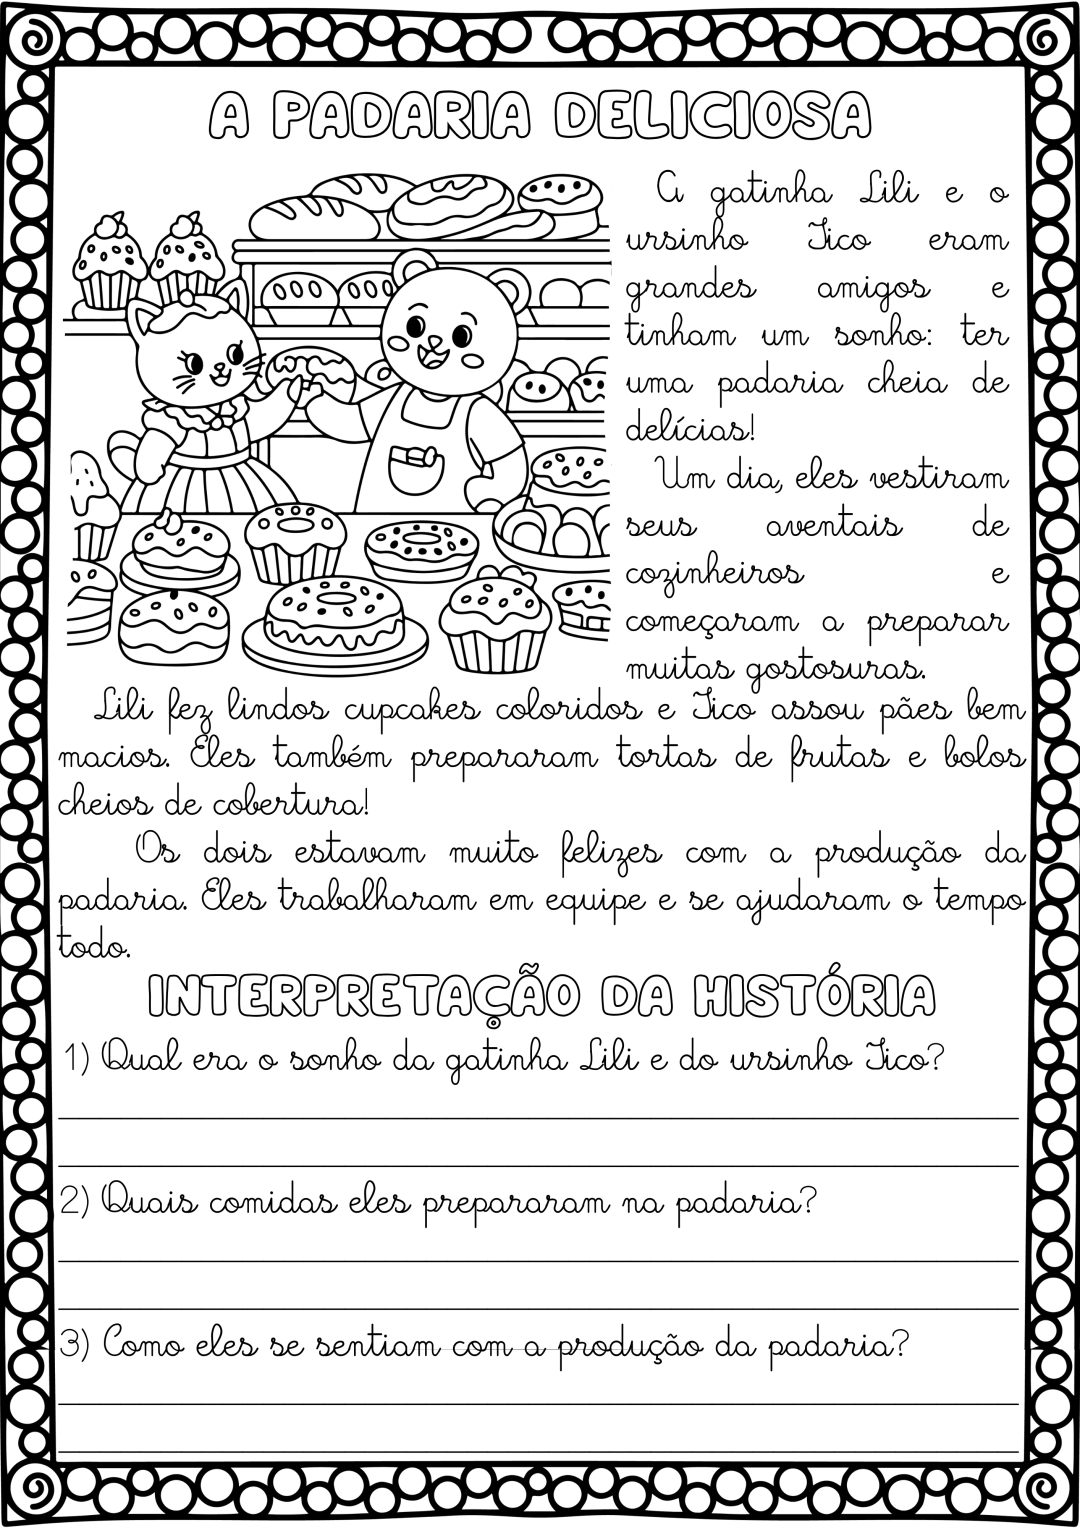 A PADARIA DELICIOSA
A gatinha Lili e o
ursinho Tico eram
grandes amigos e
tinham um sonho: ter
uma padaria cheia de
delícias!
Um dia, eles vestiram
seus aventais de
cozinheiros e
começaram a preparar
muitas gostosuras.
Lili fez lindos cupcakes coloridos e Tico assou pães bem
macios. Eles também prepararam tortas de frutas e bolos
cheios de cobertura!
Os dois estavam muito felizes com a produção da
padaria. Eles trabalharam em equipe e se ajudaram o tempo
todo.
INTERPRETAÇÃO DA HISTÓRIA
1) Qual era o sonho da gatinha Lili e do ursinho Tico?
2) Quais comidas eles prepararam na padaria?
3) Como eles se sentiam com a produção da padaria?